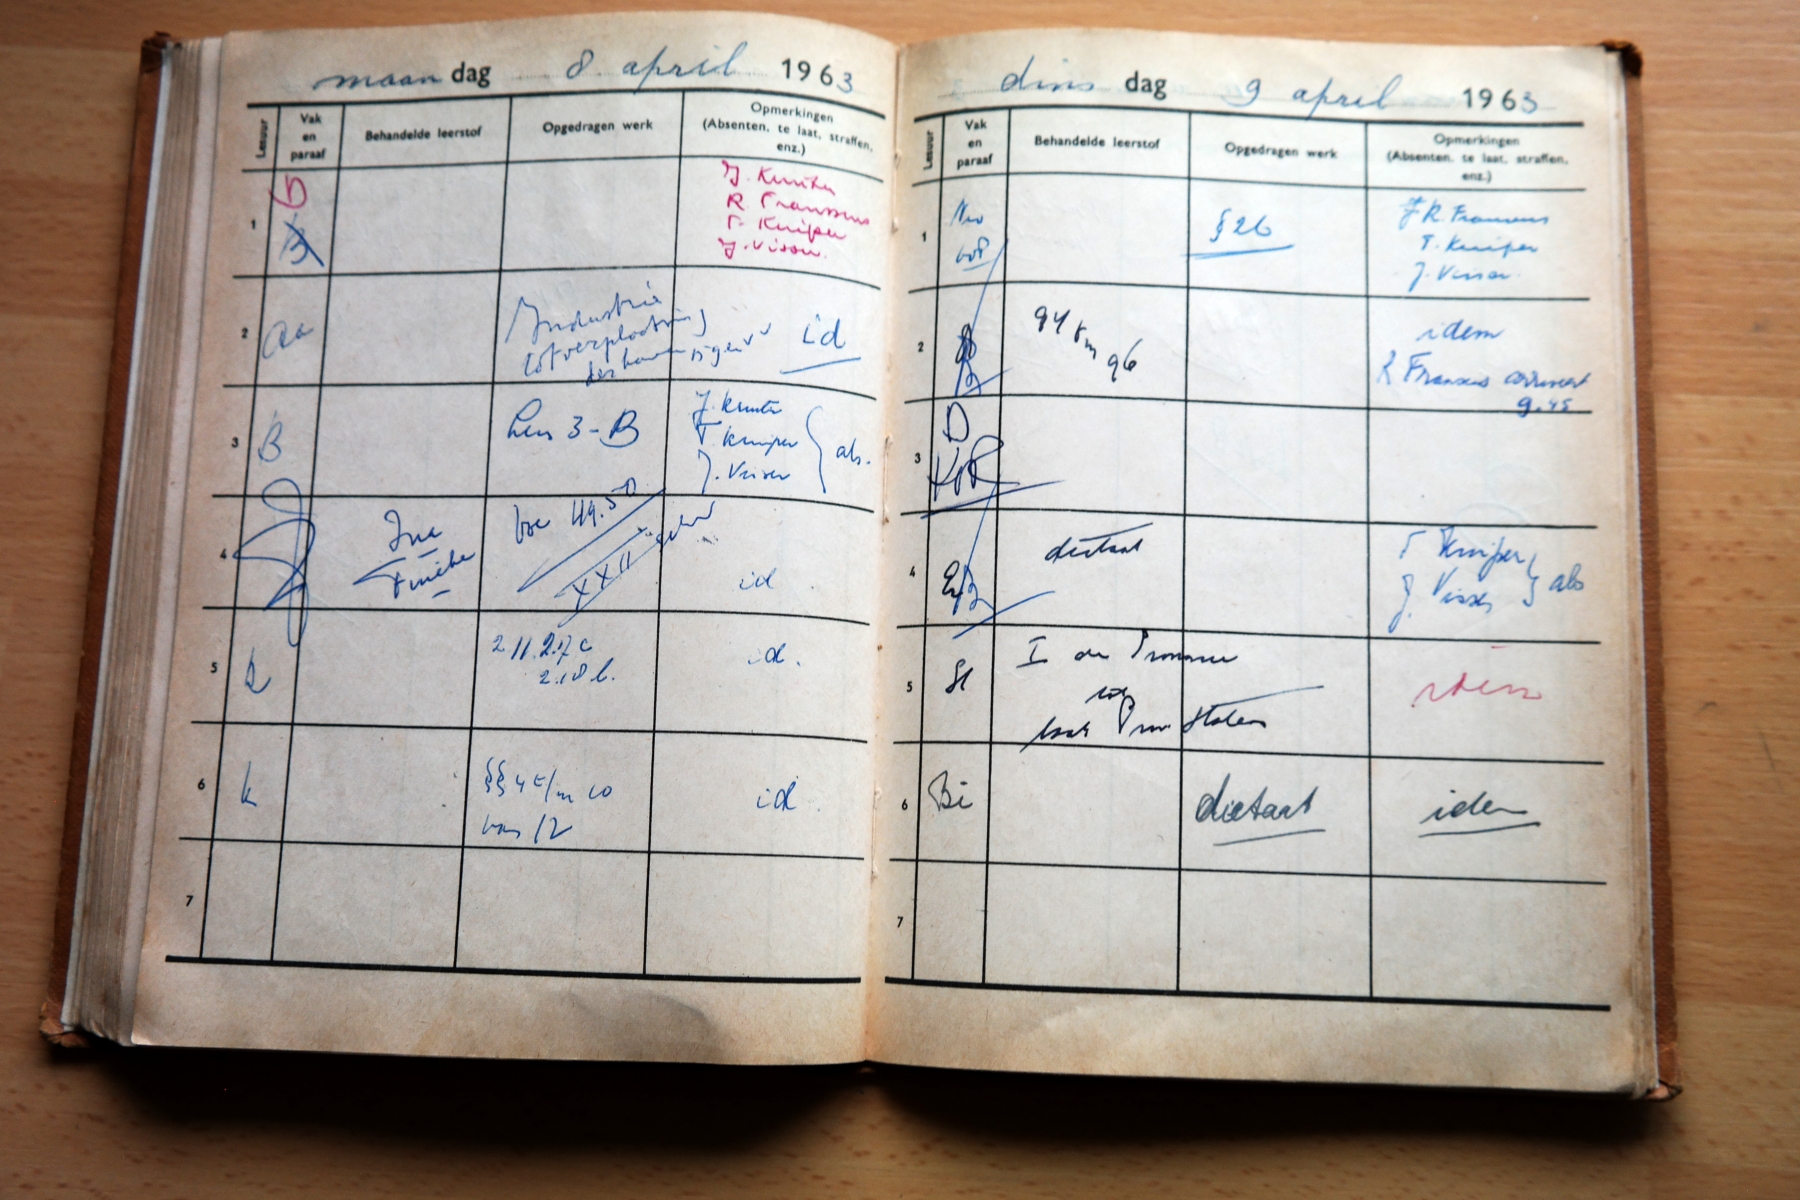 maandag 8 april 1963
Lesuur
Vak
en
paraaf
Behandelde leerstof
Opgedragen werk
Opmerkingen
(Absenten, te laat, straffen,
enz.)
1
D
B
R Franssens
T. Kuiper
J. Visser
2
aa
Industrie
id
3
B
Leren 3-B
T Kuiper
J. Visser
abs.
4
49.50
XXII
id
5
2.11.2.17 c
2.18 b.
id.
6
k
§§ 4 t/m 10
van 12
id.
7
dinsdag 9 april 1963
Lesuur
Vak
en
paraaf
Behandelde leerstof
Opgedragen werk
Opmerkingen
(Absenten, te laat, straffen,
enz.)
1
§ 26
R. Franssens
T. Kuiper
J. Visser
2
94 tm
96
idem
R Franssens
9.45
3
D
4
dictaat
T Kuiper
J. Visser
abs
5
St
I de Provincie
Prov Staten
idem
6
Bi
dictaat
idem
7